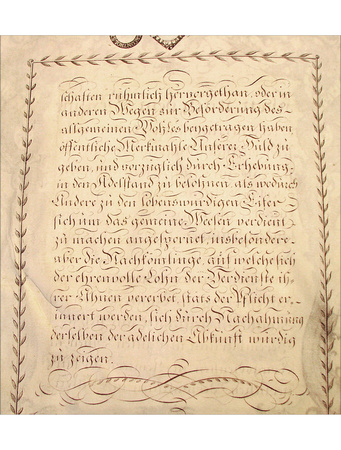 schaften rühmlich hervorgethan, oder in
anderen Wegen zur Beförderung des
allgemeinen Wohles beygetragen haben
öffentliche Merkmahle Unserer Huld zu
geben, und vorzüglich durch Erhebung
in den Adelstand zu belohnen, als wodurch
Andere zu den lobenswürdigen Eifer
sich um das gemeine Wesen verdient
zu machen angespornet, insbesondere
aber die Nachkömlinge, auf welche sich
der ehrenvolle Lohn der Verdienste ih-
rer Ahnen vererbet, stäts der Pflicht er-
innert werden, sich durch Nachahmung
derselben der adelichen Abkunft würdig
zu zeigen.